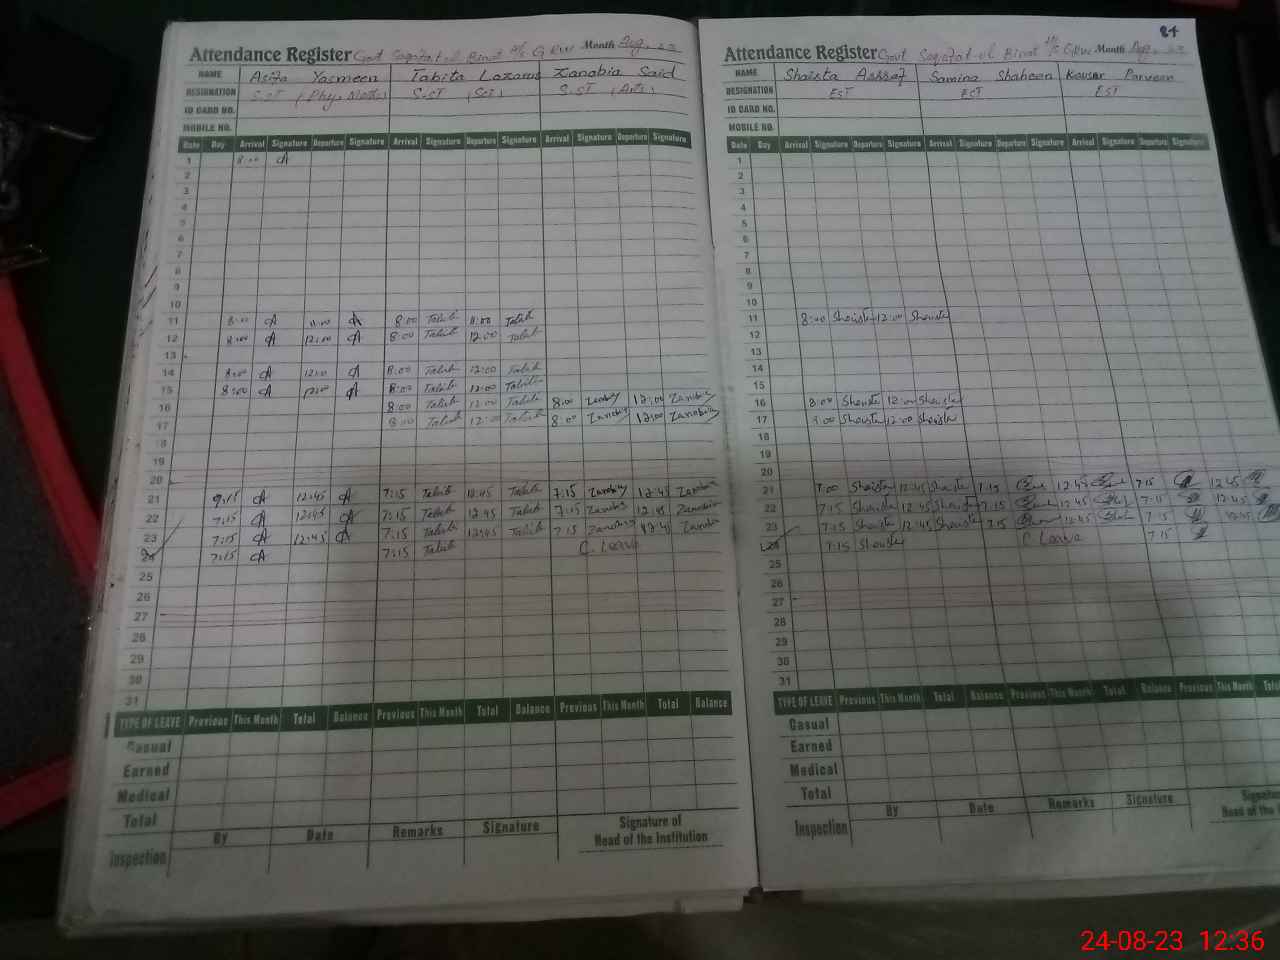 Attendance Register Govt Saqafat ul Binat H/S GRW Month Aug, 23
NAME Asifa Yasmeen Tabita Lazarus Zanabia Said
DESIGNATION S.ST (Phy, Math) S.ST (Sci) S.ST (Arts)
ID CARD NO.
MOBILE NO.
Date Day Arrival Signature Departure Signature Arrival Signature Departure Signature Arrival Signature Departure Signature
1 8:00 A
2
3
4
5
6
7
8
9
10
11 8:00 A 11:00 A 8:00 Tabit 11:00 Tabit
12 8:00 A 12:00 A 8:00 Tabit 12:00 Tabit
13
14 8:00 A 12:00 A 8:00 Tabit 12:00 Tabit
15 8:00 A 12:00 A 8:00 Tabit 12:00 Tabit
16 8:00 Tabit 12:00 Tabit 8:00 Zanabia 12:00 Zanabia
17 8:00 Tabit 12:00 Tabit 8:00 Zanabia 12:00 Zanabia
18
19
20
21 7:15 A 12:45 A 7:15 Tabit 12:45 Tabit 7:15 Zanabia 12:45 Zanabia
22 7:15 A 12:45 A 7:15 Tabit 12:45 Tabit 7:15 Zanabia 12:45 Zanabia
23 7:15 A 12:45 A 7:15 Tabit 12:45 Tabit 7:15 Zanabia 12:45 Zanabia
24 7:15 A 7:15 Tabit C. Leave
25
26
27
28
29
30
31
TYPE OF LEAVE Previous This Month Total Balance Previous This Month Total Balance Previous This Month Total Balance
Casual
Earned
Medical
Total
Inspection By Date Remarks Signature Signature of
Head of the Institution
84
Attendance Register Govt Saqafat ul Binat H/S GRW Month Aug, 23
NAME Shaista Ashraf Samina Shaheen Kousar Parveen
DESIGNATION EST EST EST
ID CARD NO.
MOBILE NO.
Date Day Arrival Signature Departure Signature Arrival Signature Departure Signature Arrival Signature Departure Signature
1
2
3
4
5
6
7
8
9
10
11 8:00 Shaista 12:00 Shaista
12
13
14
15
16 8:00 Shaista 12:00 Shaista
17 8:00 Shaista 12:00 Shaista
18
19
20
21 7:00 Shaista 12:45 Shaista 7:15 12:45 7:15 12:45
22 7:15 Shaista 12:45 Shaista 7:15 12:45 7:15 12:45
23 7:15 Shaista 12:45 Shaista 7:15 12:45 7:15 12:45
24 7:15 Shaista C. Leave 7:15
25
26
27
28
29
30
31
TYPE OF LEAVE Previous This Month Total Balance Previous This Month Total Balance Previous This Month
Casual
Earned
Medical
Total
Inspection By Date Remarks Signature
Head of the
24-08-23 12:36